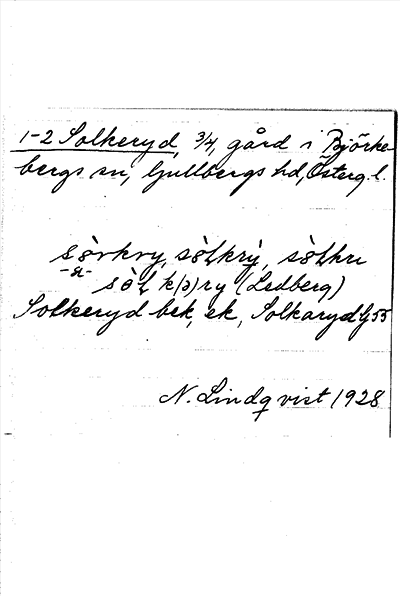 1-2 Solkeryd, 3/4, gård i Björke-
bergs sn, Gullbergs hd, Österg. l.
sòrkry, sòłkrỳ, sòłkru
-ał-
sòł k(ə)ry (Ledberg)
Solkeryd bek, ek, Solkaryd Lj 55
N. Lindqvist 1928